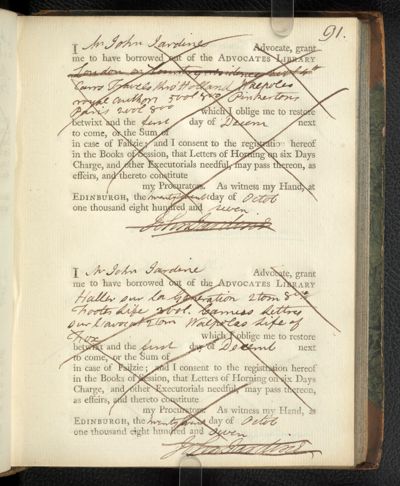 91.
I Mr John Jardine Advocate, grant
me to have borrowed out of the ADVOCATES LIBRARY
London or
Carr Travels thro' Holland Walpoles
royal authors 5 vol 8vo Pinkertons
Paris 2 vol 8vo which I oblige me to restore
betwixt and the first day of Decem next
to come, or the Sum of
in case of Failzie; and I consent to the registration hereof
in the Books of Session, that Letters of Horning on six Days
Charge, and other Executorials needful, may pass thereon, as
effeirs, and thereto constitute
my Procurators. As witness my Hand, at
EDINBURGH, the day of Octob
one thousand eight hundred and seven
John Jardine
I Mr John Jardine Advocate, grant
me to have borrowed out of the ADVOCATES LIBRARY
Haller sur la Generation 2 tom 8vo
Footes Life 2 vol. Camus Lettres
sur l'avocat 2 tom Walpoles Life of
which I oblige me to restore
betwixt and the first day of Decem next
to come, or the Sum of
in case of Failzie; and I consent to the registration hereof
in the Books of Session, that Letters of Horning on six Days
Charge, and other Executorials needful, may pass thereon,
as effeirs, and thereto constitute
my Procurators. As witness my Hand, at
EDINBURGH, the day of Octob
one thousand eight hundred and seven
John Jardine